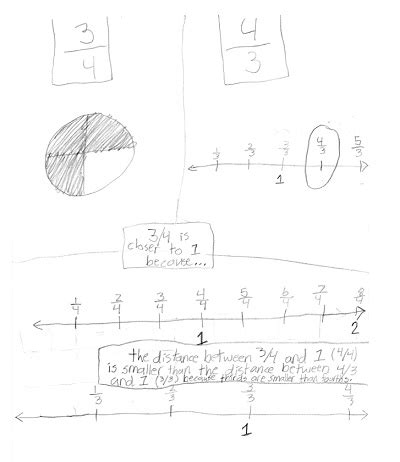 3/4
4/3
1/3 2/3 3/3 4/3 5/3
1
3/4 is
closer to 1
because...
1/4 2/4 3/4 4/4 5/4 6/4 7/4 8/4
1 2
the distance between 3/4 and 1 (4/4)
is smaller than the distance between 4/3
and 1 (3/3) because thirds are smaller than fourths.
1/3 2/3 3/3 4/3
1